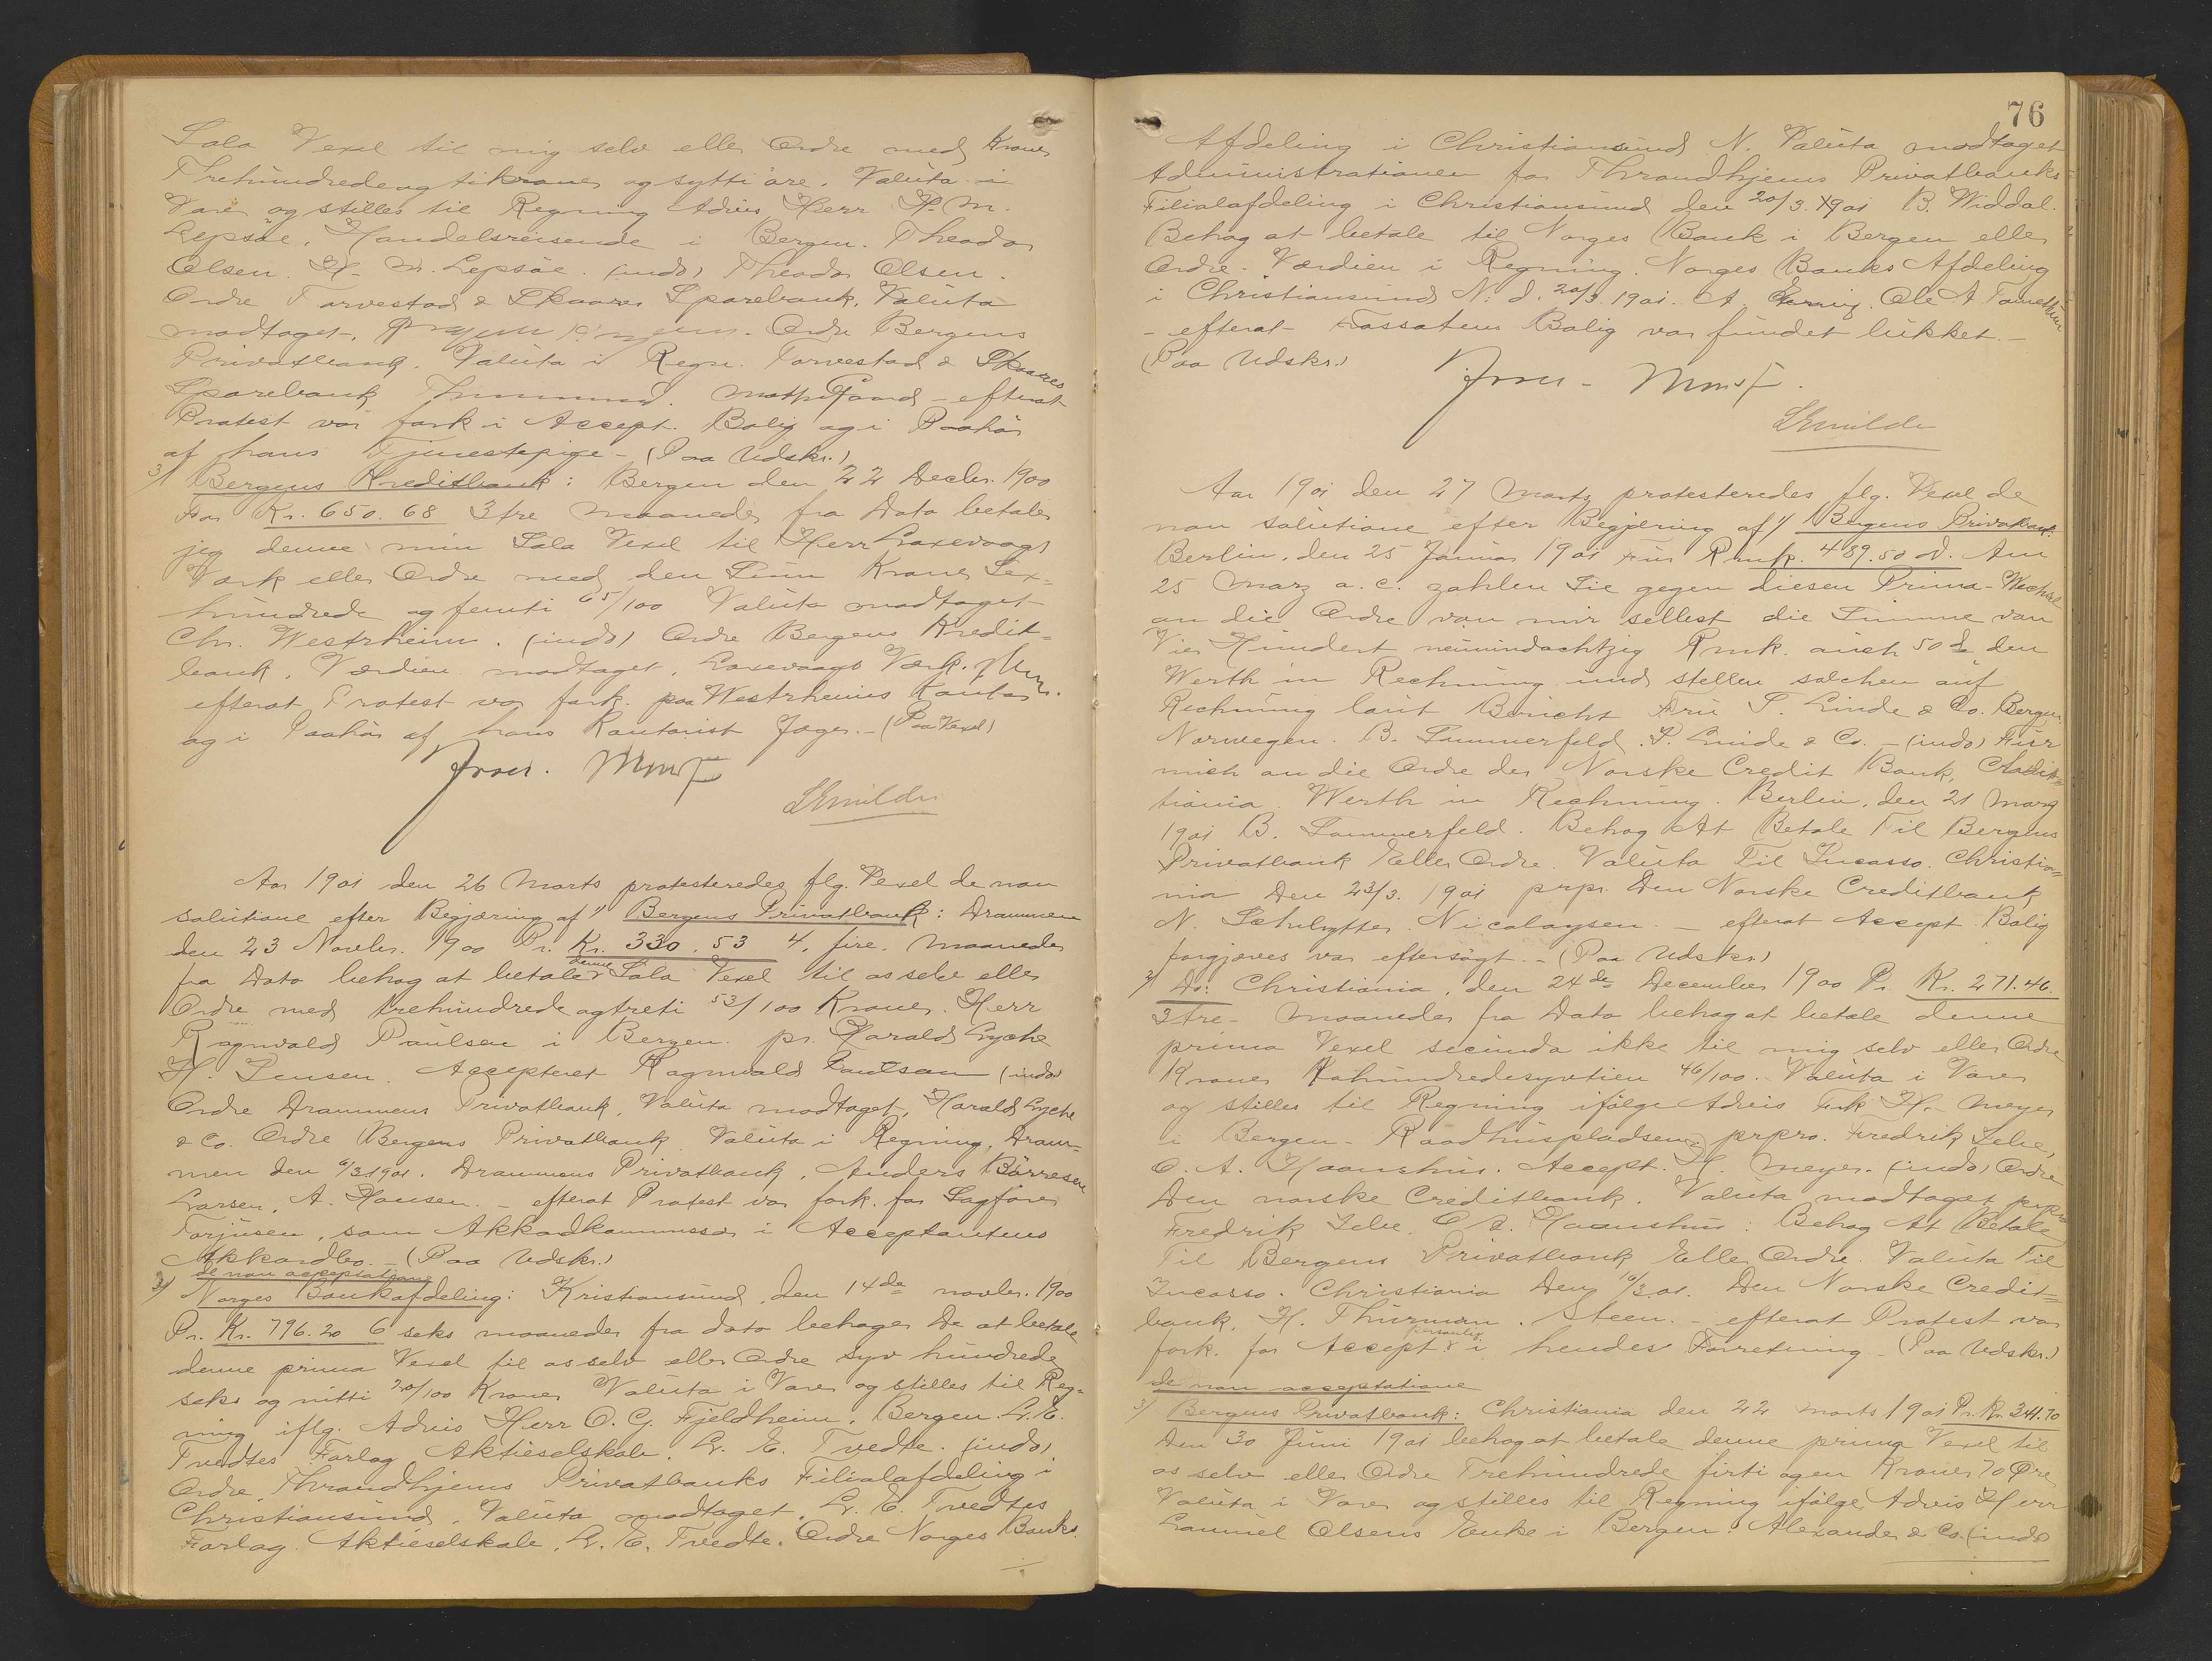 Sola Vexel til mig selv eller Ordre med Kroner
Threhundrede og ti kroner og sytti øre. Valuta i
Varer og stilles til Regning Advis Herr H. M.
Lepsøe, Handelsreisende i Bergen. Theodor
Olsen. H. M. Lepsøe. (indo) Theodor Olsen.
Ordre Torvestad & Skaare Sparebank, Valuta
modtaget, Ordre Bergens
Privatbank. Valuta i Regn. Torvestad & Skaares
Sparebank Gaard - efterat
Protest var fork. i Accept. Bolig og i Paahør
af hans Tjenestepige - (Paa Udskr.)
3) Bergens Kreditbank: Bergen den 22 Decbr. 1900
For Kr. 650.68 3 tre Maaneder fra Dato betaler
jeg denne min Sola Vexel til Herr Laxevaags
Værk eller Ordre med den Sum Kroner Sex-
hundrede og femti 65/100 Valuta modtaget
Chr. Westrheim. (indo) Ordre Bergens Kredit-
bank. Værdien modtaget. Laxevaags Værk.
efterat Protest var fork. paa Westrheims Kontor
og i Paahør af hans Kontorist Jæger. - (Paa Vexel)
Aar 1901 den 26 Marts protesteredes flg. Vexel de non
solutione efter Begjæring af 1) Bergens Privatbank: Drammen
den 23 Novbr. 1900 Pr. Kr. 330.53 4, fire, Maaneder
fra Dato behag at betale denne Sola Vexel til os selv eller
Ordre med trehundrede og treti 53/100 Kroner. Herr
Ragnvald Paulsen i Bergen. pr. Harald Lyche
H. Jensen. Accepteret Ragnvald Paulsen (indo)
Ordre Drammens Privatbank, Valuta modtaget, Harald Lyche
& Co. Ordre Bergens Privatbank Valuta i Regning, Dram-
men den 6/3 1901. Drammens Privatbank, Anders Børresen
Larsen, A. Hansen. - efterat Protest var fork. for Sagfører
Torjusen, som Akkordkommissær i Acceptantens
Akkordbo. - (Paa Udskr.)
de non acceptatione
2) Norges Bankafdeling: Kristiansund, den 14de novbr. 1900
Pr. Kr. 796.20 6 seks maaneder fra dato behager De at betale
denne prima Vexel til os selv eller Ordre syv hundrede
seks og nitti 20/100 Kroner Valuta i Varer og stilles til Reg-
ning iflg. Advis Herr O. G. Fjeldheim, Bergen. L. E.
Tvedtes Forlag Aktieselskab. L. E. Tvedte. (indo)
Ordre Throndhjems Privatbanks Filialafdeling i
Christiansund, Valuta modtaget, L. E. Tvedtes
Forlag. Aktieselskab, L. E. Tvedte. Ordre Norges Banks
76
Afdeling i Christiansund N. Valuta modtaget
Administrationen for Throndhjems Privatbanks
Filialafdeling i Christiansund den 20/3. 1901 B. Middal.
Behag at betale til Norges Bank i Bergen eller
Ordre. Værdien i Regning. Norges Banks Afdeling
i Christiansund N. d. 20/3 1901. A. Ole A
- efterat Trassatens Bolig var fundet lukket. -
(Paa Udskr.)
Aar 1901 den 27 Marts protesteredes flg. Vexel de
non solutione efter Begjæring af 1) Bergens Privatbank:
Berlin, den 25 Januar 1901 Für Rmk. 489.50 d. Am
25 Marz a. c. zahlen Sie gegen diesen Prima-Wechsel
an die Ordre von mir selbst die Summe von
Vier Hundert neunundachtzig Rmk. auch 50 den
Werth in Rechnung und stellen solchen auf
Rechnung laut Bericht Fru S. Linde & Co. Bergen
Norwegen. B. Sommerfeld. S. Linde & Co. - (indo) Für
mich an die Ordre der Norske Credit Bank, Chris-
tiania. Werth in Rechnung. Berlin, den 21 Marz
1901 B. Sommerfeld. Behag At Betale Til Bergens
Privatbank Eller Ordre. Valuta Til Incasso. Christia-
nia Den 23/3. 1901 prpr. Den Norske Creditbank,
N. Nicolaysen. - efterat Accept. Bolig
forgjæves var eftersøgt. - (Paa Udskr.)
2) Do: Christiania, den 24de December 1900 Pr. Kr. 271.46.
3 tre - Maaneder fra Dato behag at betale denne
prima Vexel secunda ikke til mig selv eller Ordre
Kroner Tohundredesyvtien 46/100. Valuta i Varer
og stilles til Regning ifølge Advis Frk H. Meyer
i Bergen - Raadhuspladsen. prpro. Fredrik Selve,
O. A. Haanshus. Accept. H Meyer. (indo) Ordre
Den norske Creditbank. Valuta modtaget prpro
Fredrik Selve. O A. Haanshus: Behag At Betale
Til Bergens Privatbank Eller Ordre. Valuta Til
Incasso. Christiania Den 16/3.01. Den Norske Credit-
bank, H. Thurman. Steen. - efterat Protest var
fork. for Accept. personlig i hendes Forretning - (Paa Udskr.)
de non acceptatione
3) Bergens Privatbank: Christiania den 22 Marts 1901 Pr. Kr. 341.70
Den 30 Juni 1901 behag at betale denne prima Vexel til
os selv eller Ordre Trehundrede firti og en Kroner 70 Øre
Valuta i Varer og stilles til Regning ifølge Advis Herr
Samuel Olsens Enke i Bergen. Alexander & Co. (indo